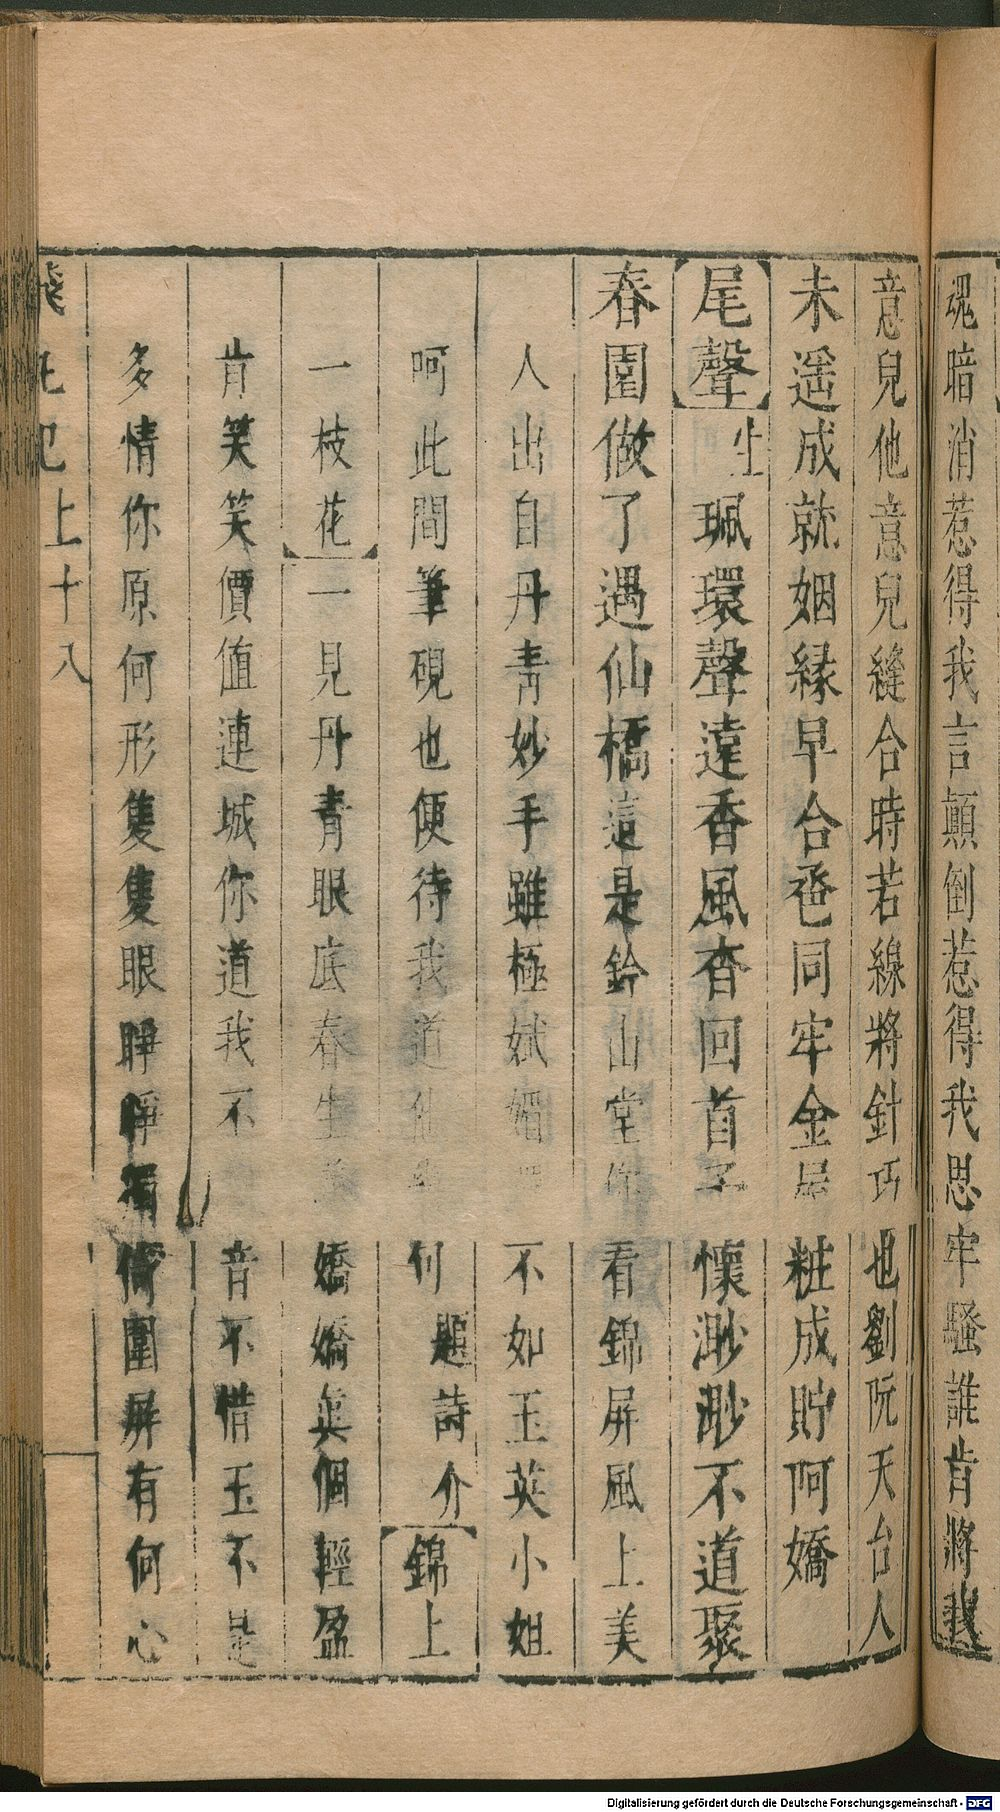 魂暗消惹得我言顛倒惹得我思牢騷誰肯將我
意兒他意兒縫合時若線將針巧也劉阮天台人
未遥成就姻縁早合卺同牢金屋粧成貯阿嬌
尾聲生珮環聲遠香風杳回首 懷渺渺不道聚
春園做了遇仙橋這是鈐山堂你看錦屏風上美
人出自丹青妙手雖極娬媚 不如玉英小姐
呵此間筆硯也便待我道 何題詩介錦上
一枝花一見丹青眼底春生 嬌嬌英個輕盈
肯笑笑價值連城你道我不 音不惜玉不是
多情你原何形隻隻眼睜睜獨倚圍屏有何心
上十八
Digitalisierung gefördert durch die Deutsche Forschungsgemeinschaft - DFG